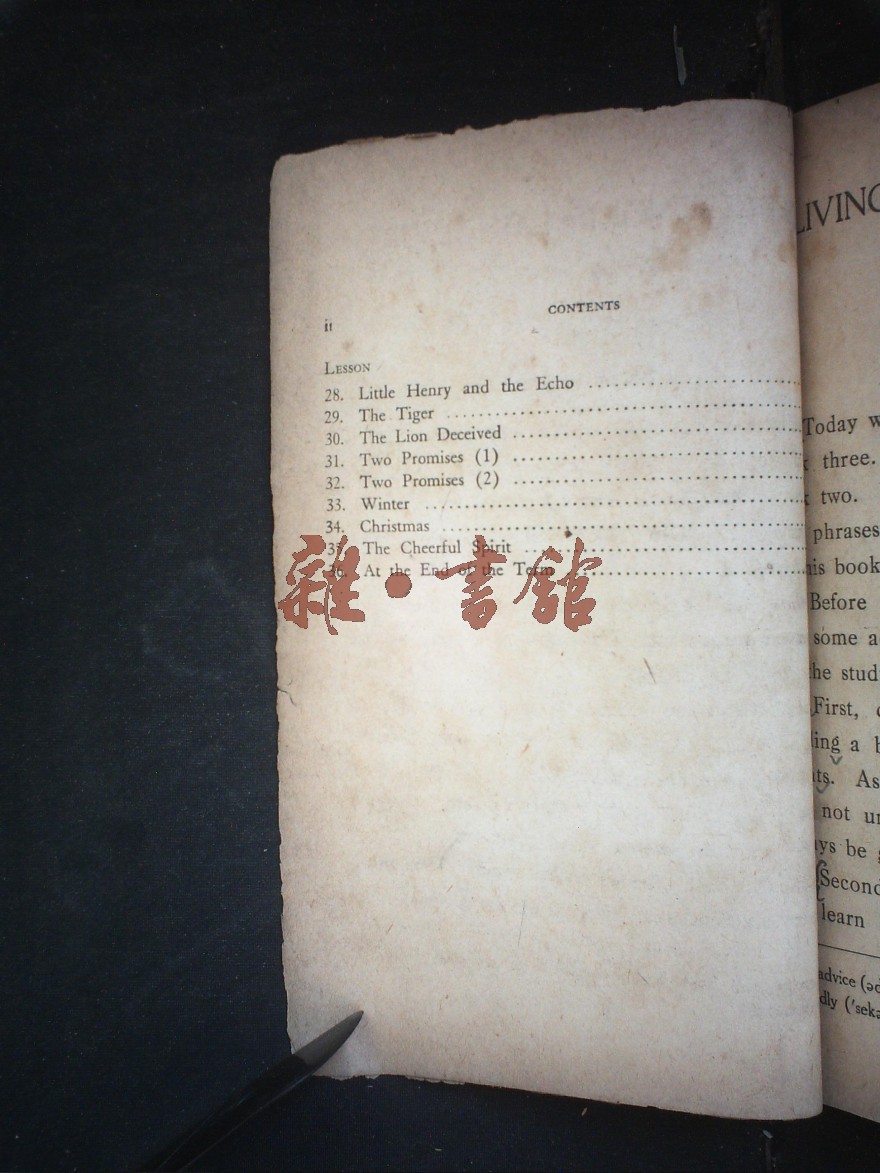 ii
CONTENTS
LESSON
28. Little Henry and the Echo
29. The Tiger
30. The Lion Deceived
31. Two Promises (1)
32. Two Promises (2)
33. Winter
34. Christmas
35. The Cheerful Spirit
36. At the End of the Term
雜·書館
LIVING
Today w
three.
two.
phrases
is book
Before
some a
he stud
First,
ing a b
ts. As
not un
ys be
Second
learn
advice (əd
dly ('sekə